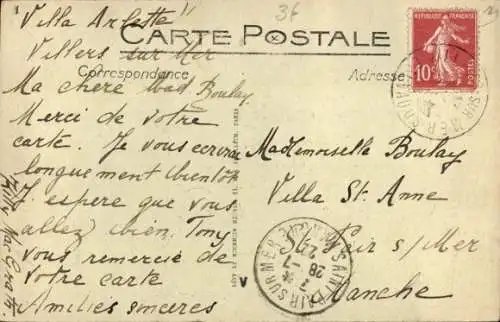 36
Villa Arlette
Villers sur Mer
CARTE POSTALE
Correspondance
Adresse
REPUBLIQUE FRANÇAISE
10c
POSTES
Ma chere Mad Boulay
Merci de votre
carte. Je vous ecrirai
longuement bientôt
J'espere que vous
allez bien. Tony
vous remercie de
votre carte
Amities sinceres
Mademoiselle Boulay
Villa St. Anne
St. Pair s/Mer
Manche
SAINT PAIR SUR MER
28